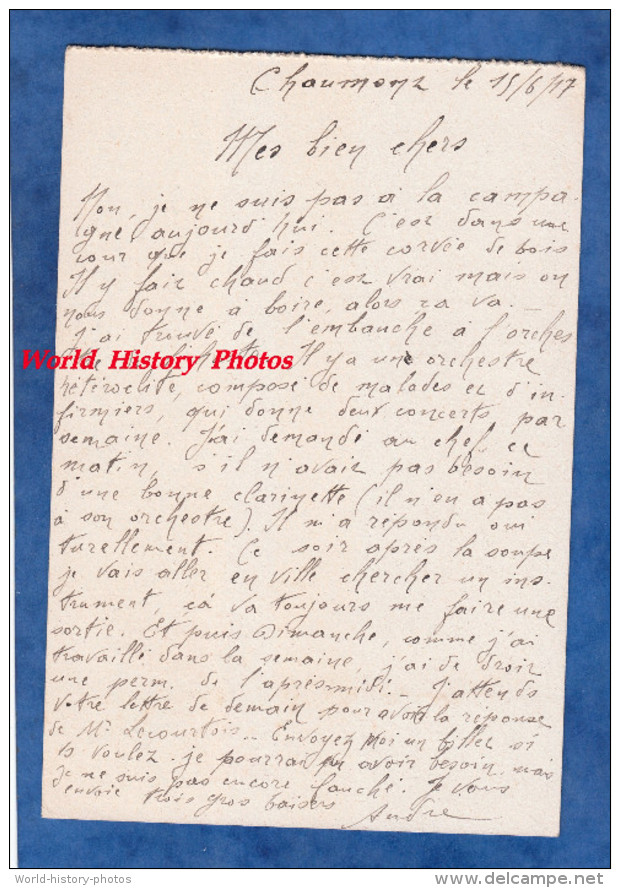 Chaumont le 15/6/17
Mes bien chers
Non, je ne suis pas à la campa-
gne aujourd'hui. C'est dans une
cour que je fais cette corvée de bois
Il y fait chaud c'est vrai mais on
nous donne à boire, alors ça va.—
J'ai trouvé de l'embauche à l'orches
World History Photos Il y a une orchestre
hétéroclite, composé de malades et d'in-
firmiers, qui donne deux concerts par
semaine. J'ai demandé au chef ce
matin, s'il n'avait pas besoin
d'une bonne clarinette (il n'en a pas
à son orchestre). Il m'a répondu oui
turellement. Ce soir après la soupe
je vais aller en ville chercher un ins-
trument, çà va toujours me faire une
sortie. Et puis Dimanche, comme j'ai
travaillé dans la semaine, j'ai de droit
une perm. de l'après-midi.— J'attends
votre lettre de demain pour avoir la réponse
de Mr Lecourtois.— Envoyez moi un billet si
vs voulez. je pourrai en avoir besoin, mais
je ne suis pas encore fauché. Je vous
envoie trois gros baisers
André
World-history-photos
delcampe.net